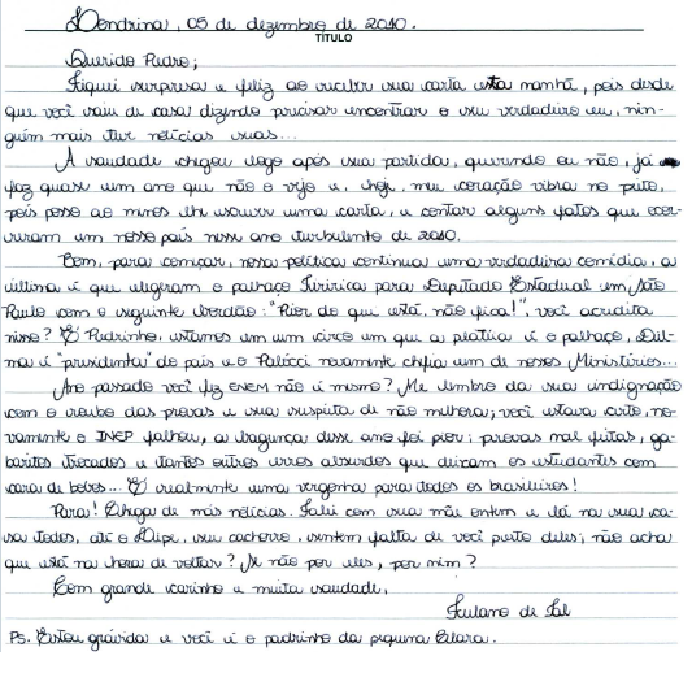 Londrina, 05 de dezembro de 2010.
TÍTULO
Querido Pedro;
Fiquei surpresa e feliz ao receber sua carta esta manhã, pois desde
que você saiu de casa dizendo precisar encontrar o seu verdadeiro eu, nin-
guém mais teve notícias suas...
A saudade chegou logo após sua partida, querendo ou não, já
faz quase um ano que não o vejo e, hoje, meu coração vibra no peito,
pois posso ao menos lhe escrever uma carta, e contar alguns fatos que ocor-
reram em nosso país nesse ano turbulento de 2010.
Bem, para começar, nossa política continua uma verdadeira comédia, a
última é que elegeram o palhaço Tiririca para Deputado Estadual em São
Paulo com o seguinte bordão: "Pior do que está, não fica!", você acredita
nisso? É Pedrinho, estamos em um circo em que a platéia é o palhaço, Dil-
ma é "presidenta" do país e o Palocci novamente chefia um de nossos Ministérios...
Ano passado você fez ENEM não é mesmo? Me lembro da sua indignação
com o roubo das provas e sua suspeita de não melhora; você estava certo, no-
vamente o INEP falhou, a bagunça desse ano foi pior: provas mal feitas, ga-
baritos trocados e tantos outros erros absurdos que deixam os estudantes com
cara de bobos... É realmente uma vergonha para todos os brasileiros!
Para! Chega de más notícias. Falei com sua mãe ontem e lá na sua ca-
sa todos, até o Lipe, seu cachorro, sentem falta de você perto deles; não acha
que está na hora de voltar? Se não por eles, por mim?
Com grande carinho e muita saudade,
Fulano de Tal
Ps. Estou grávida e você é o padrinho da pequena Clara.